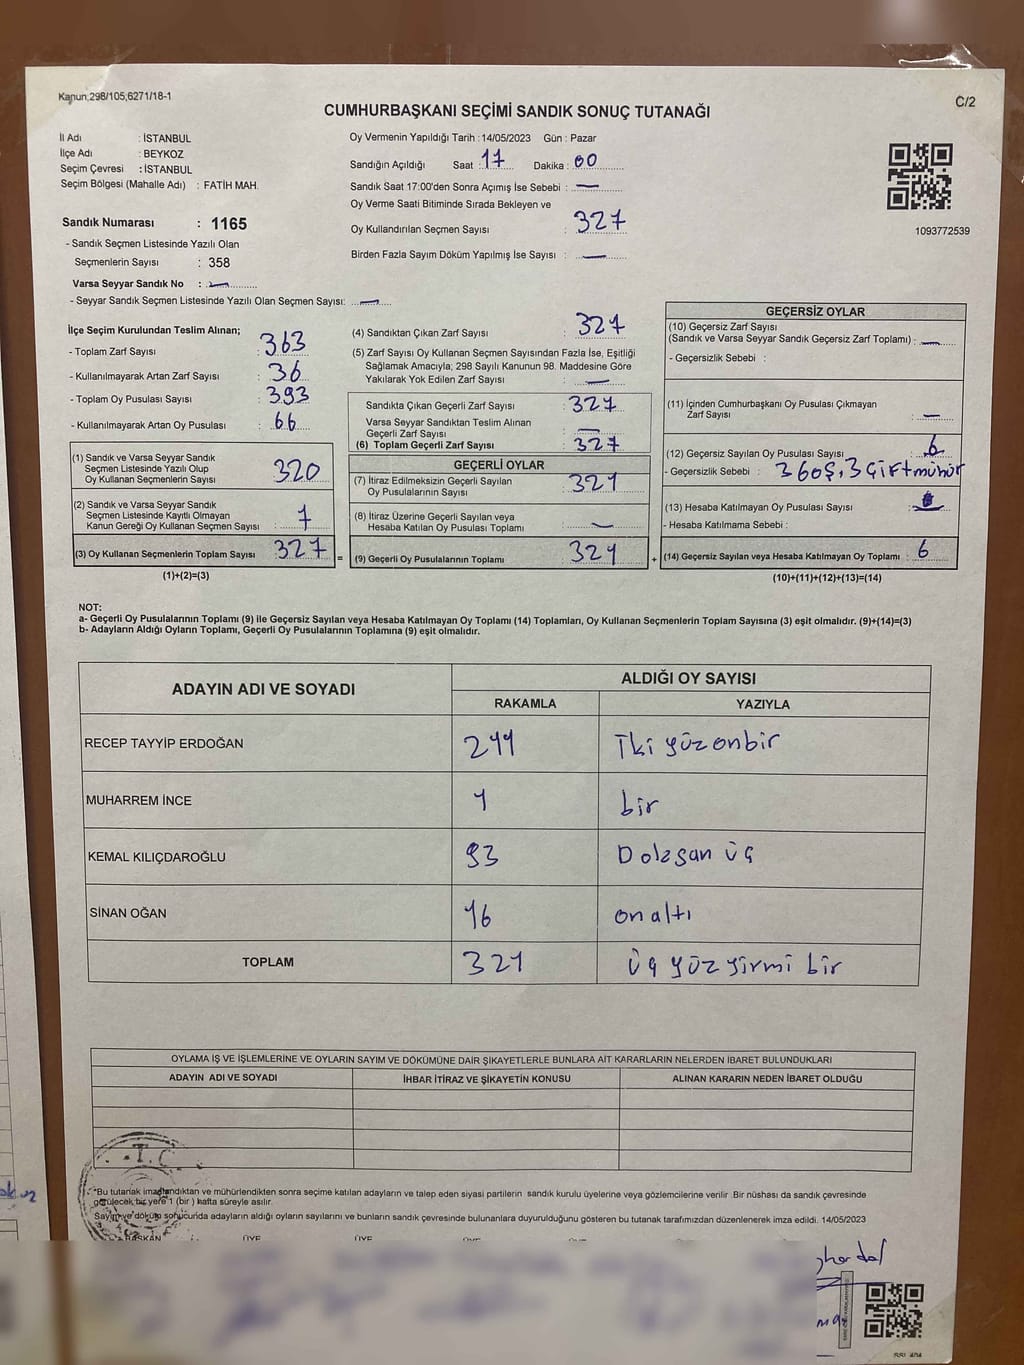 Kanun;298/105;6271/18-1
C/2
CUMHURBAŞKANI SEÇİMİ SANDIK SONUÇ TUTANAĞI
İl Adı : İSTANBUL
İlçe Adı : BEYKOZ
Seçim Çevresi : İSTANBUL
Seçim Bölgesi (Mahalle Adı) : FATİH MAH.
Sandık Numarası : 1165
- Sandık Seçmen Listesinde Yazılı Olan
Seçmenlerin Sayısı : 358
Varsa Seyyar Sandık No : —
- Seyyar Sandık Seçmen Listesinde Yazılı Olan Seçmen Sayısı: —
Oy Vermenin Yapıldığı Tarih : 14/05/2023 Gün : Pazar
Sandığın Açıldığı Saat : 17 Dakika : 00
Sandık Saat 17:00'den Sonra Açımış İse Sebebi : —
Oy Verme Saati Bitiminde Sırada Bekleyen ve
Oy Kullandırılan Seçmen Sayısı : 327
Birden Fazla Sayım Döküm Yapılmış İse Sayısı : —
1093772539
İlçe Seçim Kurulundan Teslim Alınan;
- Toplam Zarf Sayısı : 363
- Kullanılmayarak Artan Zarf Sayısı : 36
- Toplam Oy Pusulası Sayısı : 393
- Kullanılmayarak Artan Oy Pusulası : 66
(1) Sandık ve Varsa Seyyar Sandık
Seçmen Listesinde Yazılı Olup
Oy Kullanan Seçmenlerin Sayısı : 320
(2) Sandık ve Varsa Seyyar Sandık
Seçmen Listesinde Kayıtlı Olmayan
Kanun Gereği Oy Kullanan Seçmen Sayısı : 7
(3) Oy Kullanan Seçmenlerin Toplam Sayısı : 327
(1)+(2)=(3)
=
(4) Sandıktan Çıkan Zarf Sayısı : 327
(5) Zarf Sayısı Oy Kullanan Seçmen Sayısından Fazla İse, Eşitliği
Sağlamak Amacıyla; 298 Sayılı Kanunun 98. Maddesine Göre
Yakılarak Yok Edilen Zarf Sayısı : —
Sandıkta Çıkan Geçerli Zarf Sayısı : 327
Varsa Seyyar Sandıktan Teslim Alınan
Geçerli Zarf Sayısı : —
(6) Toplam Geçerli Zarf Sayısı : 327
GEÇERLİ OYLAR
(7) İtiraz Edilmeksizin Geçerli Sayılan
Oy Pusulalarının Sayısı : 321
(8) İtiraz Üzerine Geçerli Sayılan veya
Hesaba Katılan Oy Pusulası Toplamı : —
(9) Geçerli Oy Pusulalarının Toplamı : 321
+
GEÇERSİZ OYLAR
(10) Geçersiz Zarf Sayısı
(Sandık ve Varsa Seyyar Sandık Geçersiz Zarf Toplamı) : —
- Geçersizlik Sebebi :
(11) İçinden Cumhurbaşkanı Oy Pusulası Çıkmayan
Zarf Sayısı : —
(12) Geçersiz Sayılan Oy Pusulası Sayısı : 6
- Geçersizlik Sebebi : 3 boş, 3 çift mühür
(13) Hesaba Katılmayan Oy Pusulası Sayısı :
- Hesaba Katılmama Sebebi :
(14) Geçersiz Sayılan veya Hesaba Katılmayan Oy Toplamı : 6
(10)+(11)+(12)+(13)=(14)
NOT:
a- Geçerli Oy Pusulalarının Toplamı (9) ile Geçersiz Sayılan veya Hesaba Katılmayan Oy Toplamı (14) Toplamları, Oy Kullanan Seçmenlerin Toplam Sayısına (3) eşit olmalıdır. (9)+(14)=(3)
b- Adayların Aldığı Oyların Toplamı, Geçerli Oy Pusulalarının Toplamına (9) eşit olmalıdır.
ADAYIN ADI VE SOYADI ALDIĞI OY SAYISI
RAKAMLA YAZIYLA
RECEP TAYYİP ERDOĞAN 211 İki yüz onbir
MUHARREM İNCE 1 bir
KEMAL KILIÇDAROĞLU 93 Doksan üç
SİNAN OĞAN 16 on altı
TOPLAM 321 üç yüz yirmi bir
OYLAMA İŞ VE İŞLEMLERİNE VE OYLARIN SAYIM VE DÖKÜMÜNE DAİR ŞİKAYETLERLE BUNLARA AİT KARARLARIN NELERDEN İBARET BULUNDUKLARI
ADAYIN ADI VE SOYADI İHBAR İTİRAZ VE ŞİKAYETİN KONUSU ALINAN KARARIN NEDEN İBARET OLDUĞU
T.C.
*Bu tutanak imzalandıktan ve mühürlendikten sonra seçime katılan adayların ve talep eden siyasi partilerin sandık kurulu üyelerine veya gözlemcilerine verilir .Bir nüshası da sandık çevresinde
görülecek bir yere 1 (bir ) hafta süreyle asılır.
Sayım ve döküm sonucunda adayların aldığı oyların sayılarını ve bunların sandık çevresinde bulunanlara duyurulduğunu gösteren bu tutanak tarafımızdan düzenlenerek imza edildi. 14/05/2023
BAŞKAN ÜYE ÜYE